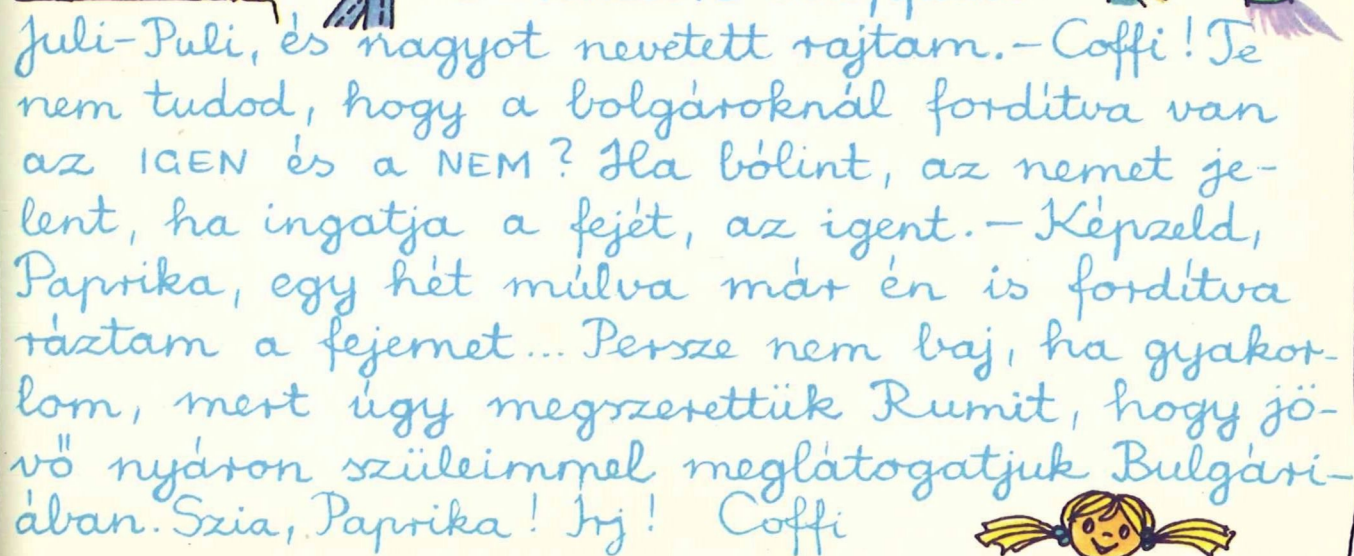 Juli-Puli, és nagyot nevetett rajtam.– Coffi! Te
nem tudod, hogy a bolgároknál fordítva van
az IGEN és a NEM? Ha bólint, az nemet je-
lent, ha ingatja a fejét, az igent.– Képzeld,
Paprika, egy hét múlva már én is fordítva
ráztam a fejemet... Persze nem baj, ha gyakor-
lom, mert úgy megszerettük Rumit, hogy jö-
vő nyáron szüleimmel meglátogatjuk Bulgári-
ában. Szia, Paprika! Írj! Coffi